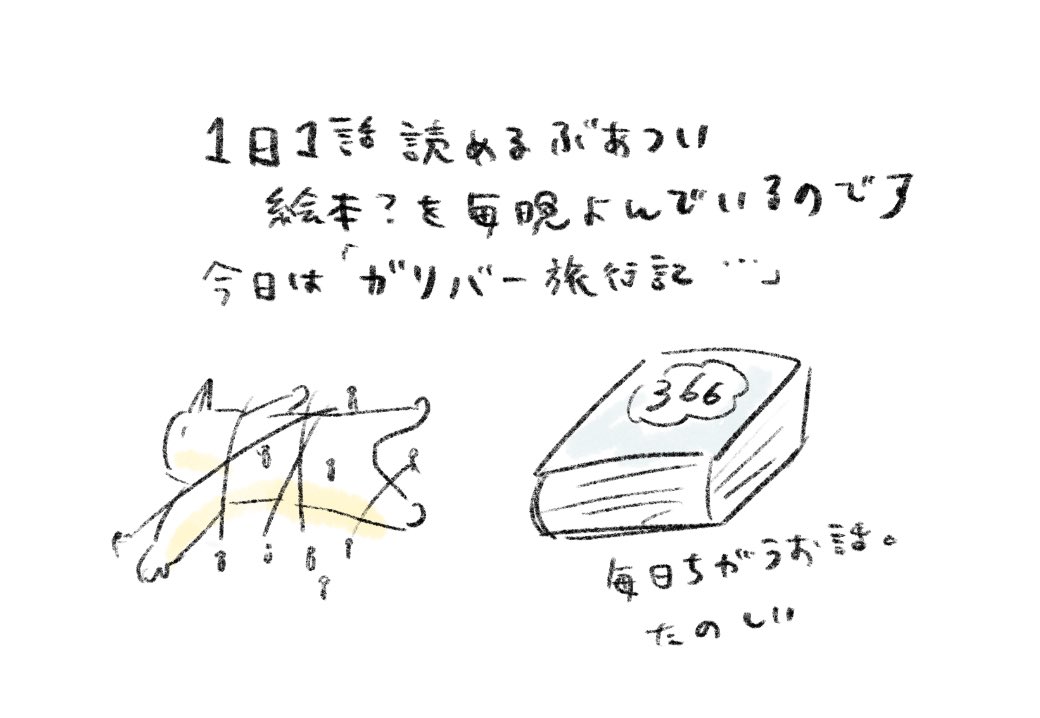 1日1話 読めるぶあつい
絵本?を毎晩よんでいるのです
今日は「ガリバー旅行記…」
366
毎日ちがうお話。
たのしい